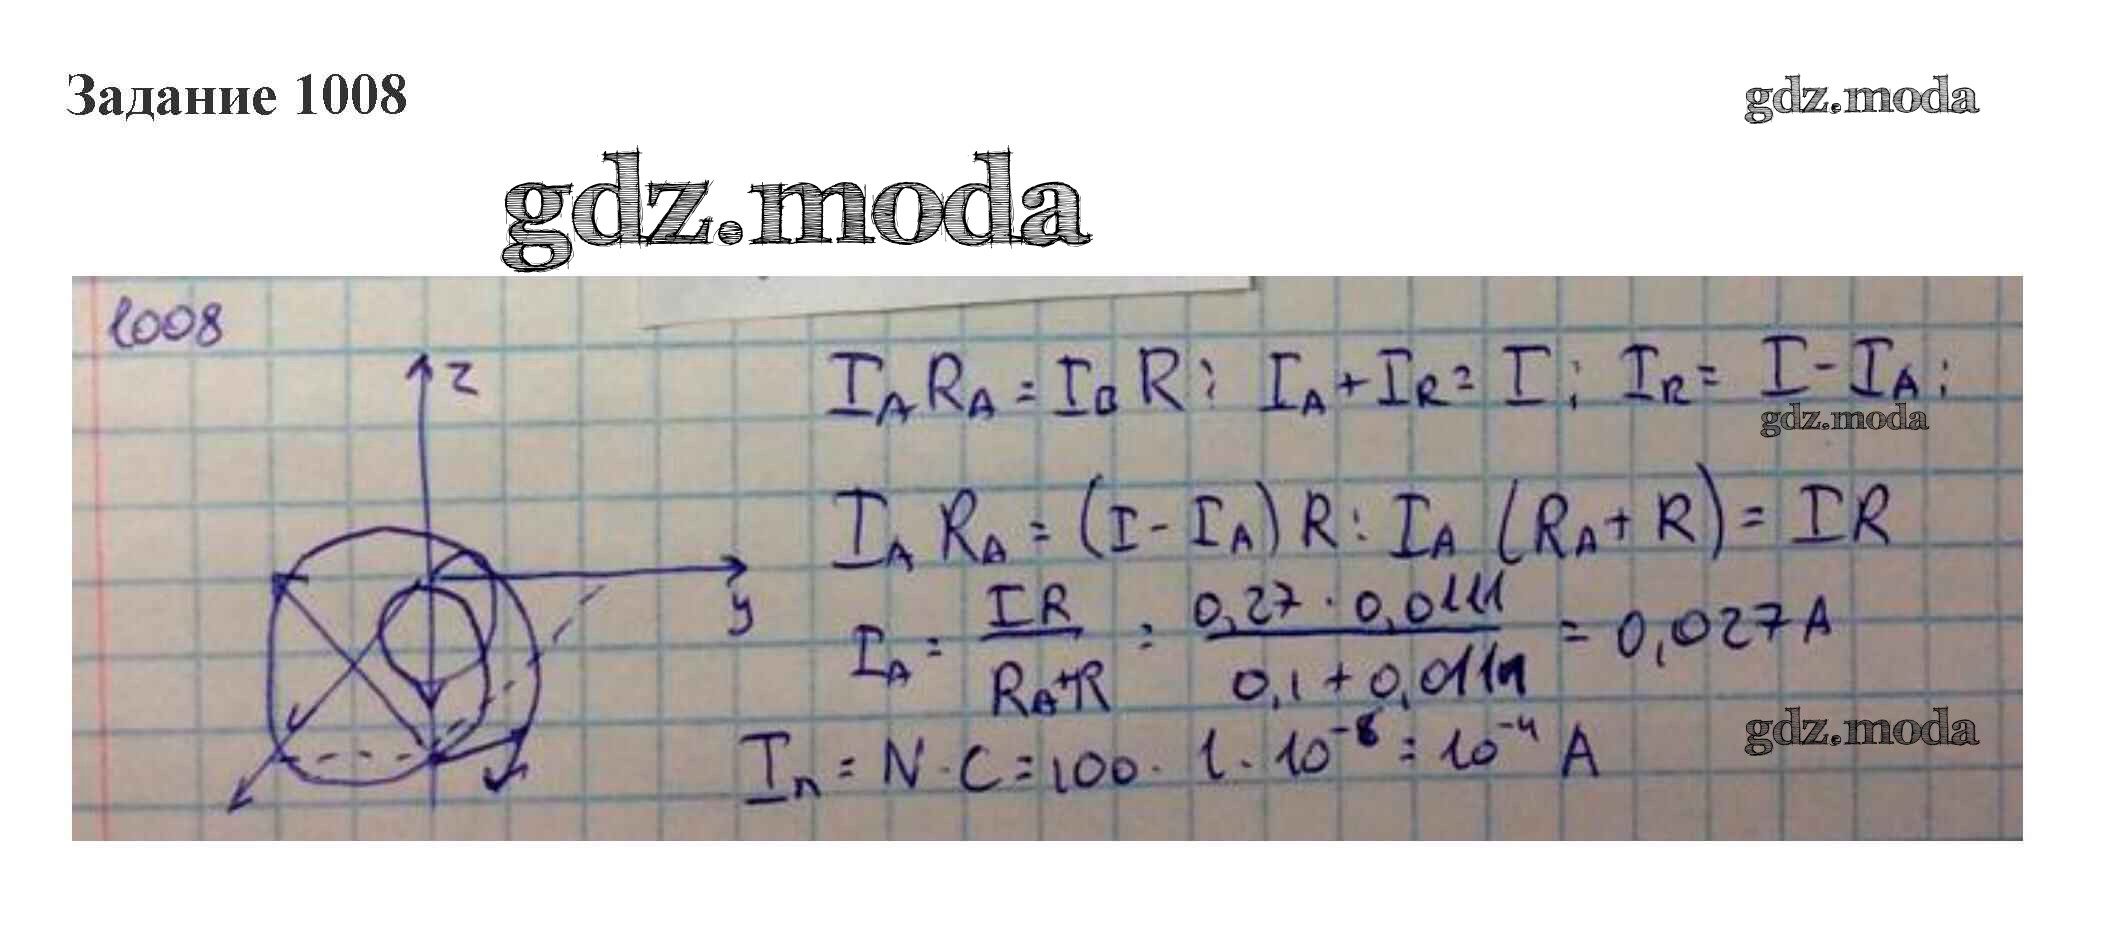 Задание 1008
gdz.moda
gdz.moda
1008
z
y
I_A R_A = I_B R; I_A + I_R = I; I_R = I - I_A;
gdz.moda
I_A R_A = (I - I_A) R: I_A (R_A + R) = IR
I_A = IR / (R_A + R) = 0,27 · 0,0111 / (0,1 + 0,0111) = 0,027 A
I_n = N · C = 100 · 1 · 10^-6 = 10^-4 A
gdz.moda